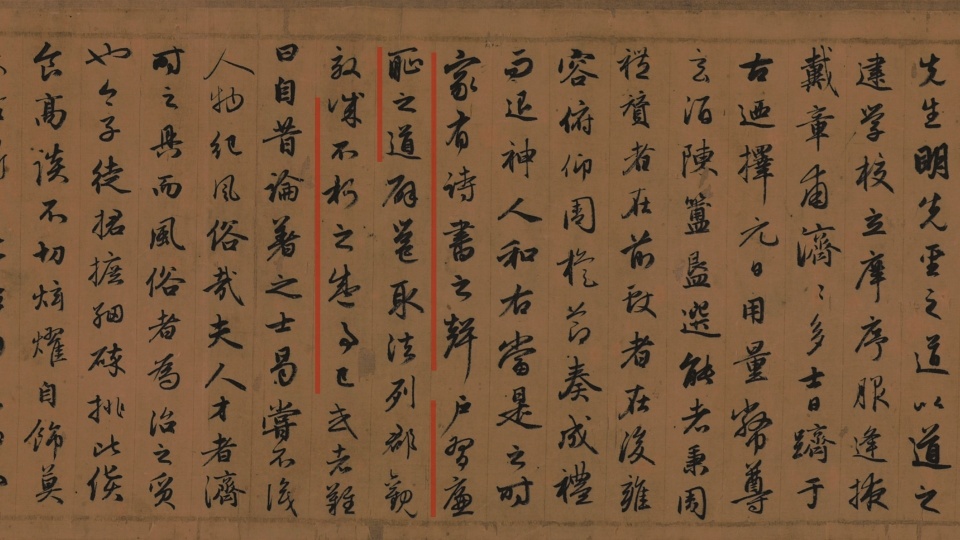 先生明先聖之道以道之
建学校立庠序服逢掖
戴章甫濟〻多士日躋于
古迺擇元日用量幣尊
玄酒陳簠簋選能者秉周
禮賛者在前致者在後雍
容俯仰周旋節奏成禮
而退神人和右當是之时
家有詩書之聲戶習廉
恥之道辟雍取法列郡觀
效誠不朽之盛事已或者難
曰自昔論著之士曷嘗不後
人物紀風俗哉夫人才者濟
时之具而風俗者為治之資
也今子徒捃摭细碎排比侯
食高談不切炫燿自飾莫